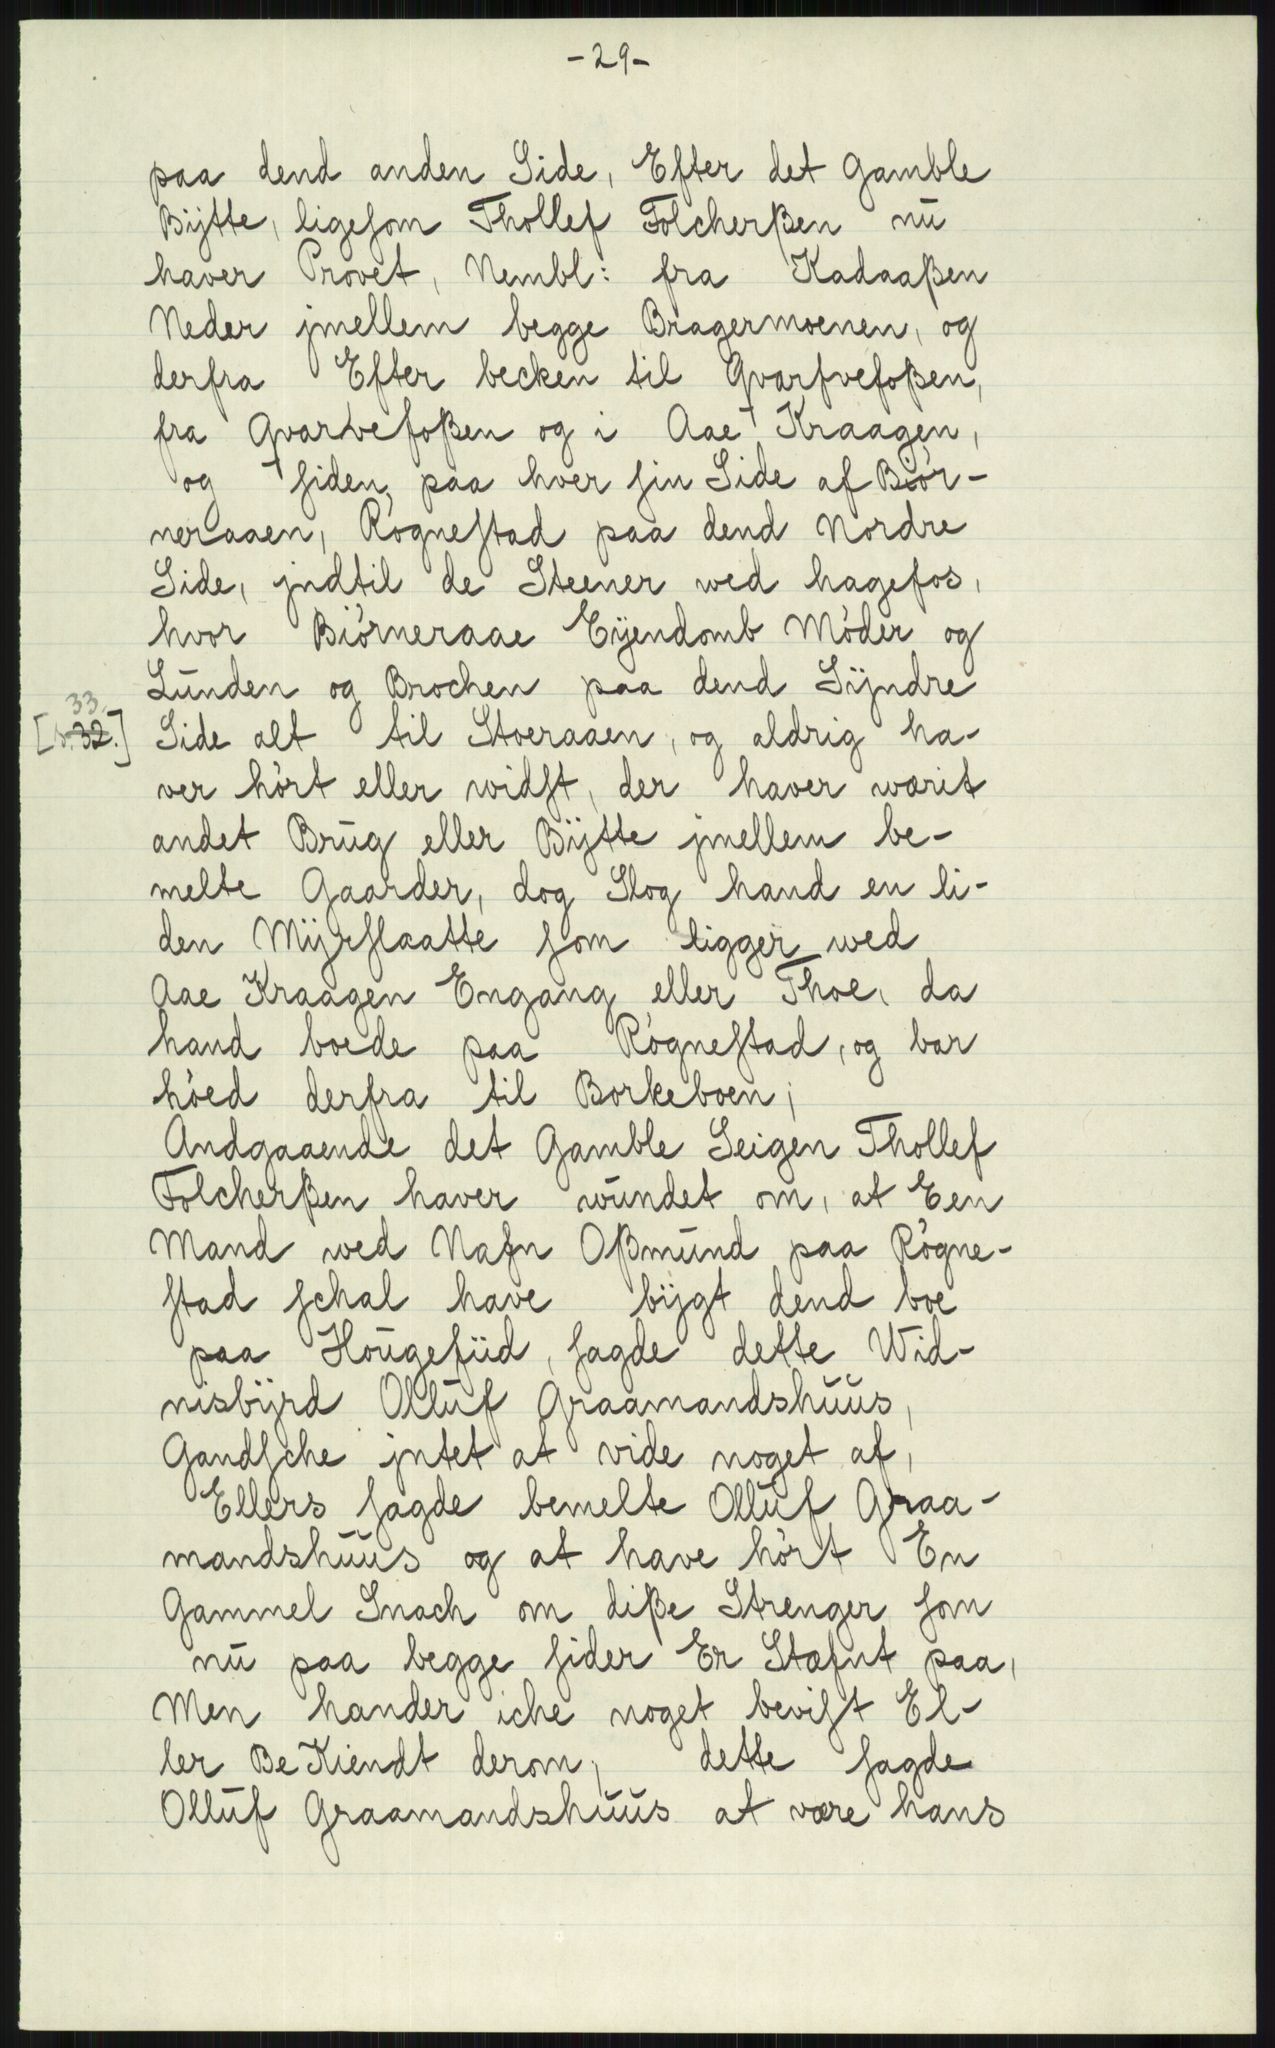 -29-
paa dend anden Side, Efter det Gamble
Bijtte, ligesom Thollef Folcherßen nū
haver Provet, Nembl: fra Kadaaßen
Neder jmellem begge Bragermoenen, og
derfra Efter becken til Qvarfvefoßen,
fra Qvarvefoßen og i Aae Kraagen,
og siden, paa hver sin Side af Biór-
neraaen, Rógnestad paa dend Nordre
Side, jndtil de Steener wed hagefos,
hvor Biórneraae Eÿendomb Móder og
Lūnden og Brochen paa dend Sÿndre
33.
[s. 32.] Side alt til Stoeraaen, og aldrig ha-
ver hórt eller widst, der haver wærit
andet Brūg eller Bÿtte jmellem be-
melte Gaarder, dog Slog hand en li-
den Mÿrslaatte som ligger wed
Aae Kraagen Engang eller Thoe, da
hand boede paa Rógnestad, og bar
hóed derfra til Borkeboen;
Andgaaende det Gamble Seigen Thollef
Folcherßen haver wūndet om, at Een
Mand wed Nafn Oßmūnd paa Rógne-
stad schal have bÿgt dend boe
paa Hoūgefiid, sagde dette Wid-
nisbÿrd Ollūf Graamandshūūs,
Gandsche jntet at vide noget af,
Ellers sagde bemelte Ollūf Graa-
mandshūūs og at have hórt En
Gammel Snach om diße Strenger som
nū paa begge sider Er Stæfnt paa,
Men hander iche noget bevist El-
ler BeKiendt derom, dette sagde
Ollūf Graamandshūūs at være hans